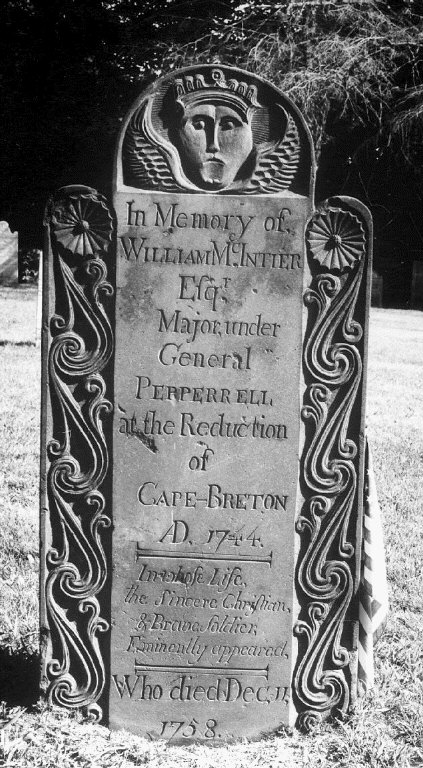 In Memory of
WILLIAM Mc.INTIER
Esqr.
Major, under
General
PEPPERRELL
at the Reduction
of
CAPE-BRETON
AD. 1744.
In whose Life,
the Sincere Christian,
& Brave Soldier,
Eminently appeared,
Who died Dec, 11,
1758.